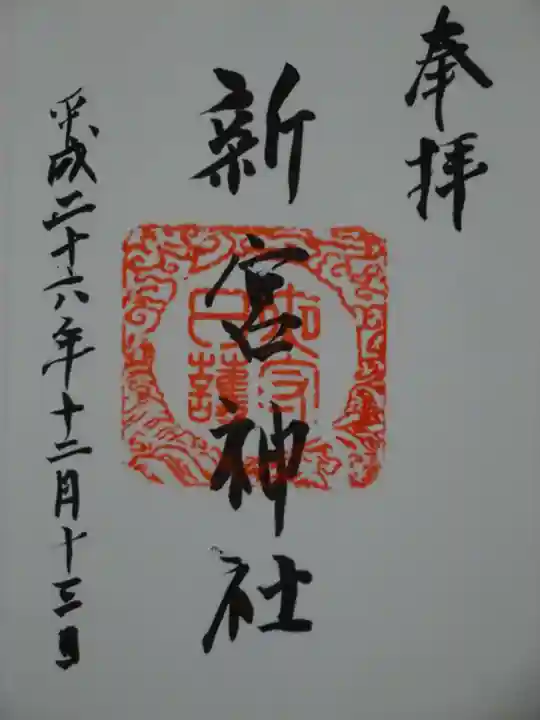 奉拝
新宮神社
平成二十六年十二月十三日